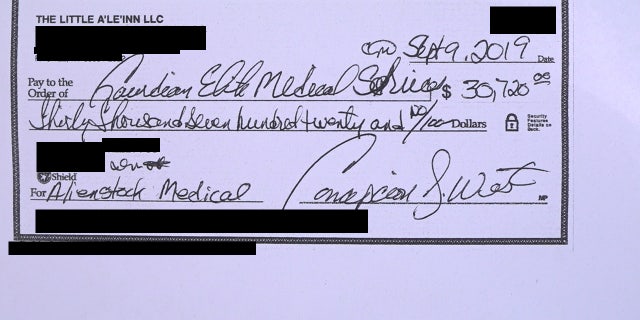 THE LITTLE A'LE'INN LLC
Sept 9, 2019 Date
Pay to the
Order of Gaurdian Elite Medical Services $ 30,720 00
Thirty thousand seven hundred twenty and 00/100 Dollars
Security
Features
Details on
Back.
Shield
For Alienstock Medical Concepcion J. West
MP